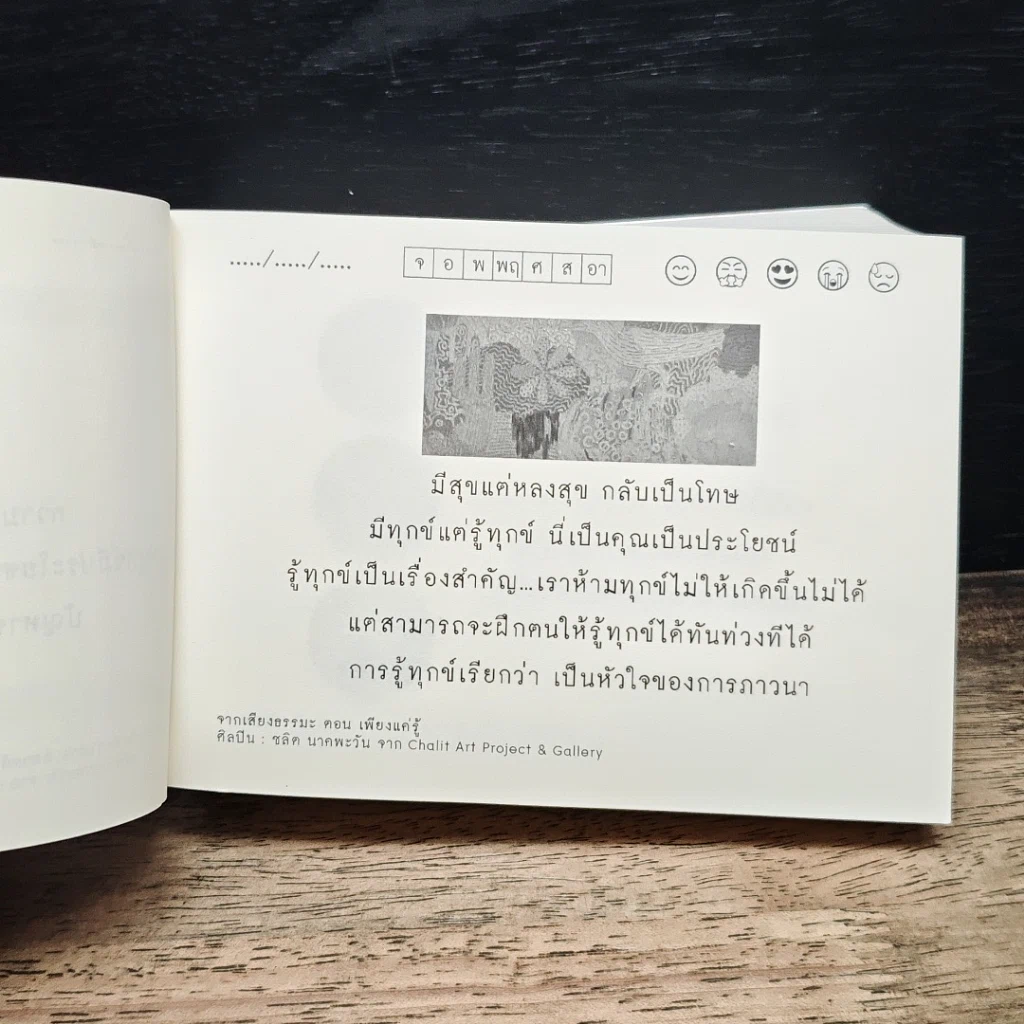 ...../...../.....
จ อ พ พฤ ศ ส อา
มีสุขแต่หลงสุข กลับเป็นโทษ
มีทุกข์แต่รู้ทุกข์ นี่เป็นคุณเป็นประโยชน์
รู้ทุกข์เป็นเรื่องสำคัญ...เราห้ามทุกข์ไม่ให้เกิดขึ้นไม่ได้
แต่สามารถจะฝึกตนให้รู้ทุกข์ได้ทันท่วงทีได้
การรู้ทุกข์เรียกว่า เป็นหัวใจของการภาวนา
จากเสียงธรรมะ ตอน เพียงแค่รู้
ศิลปิน : ชลิต นาคพะวัน จาก Chalit Art Project & Gallery